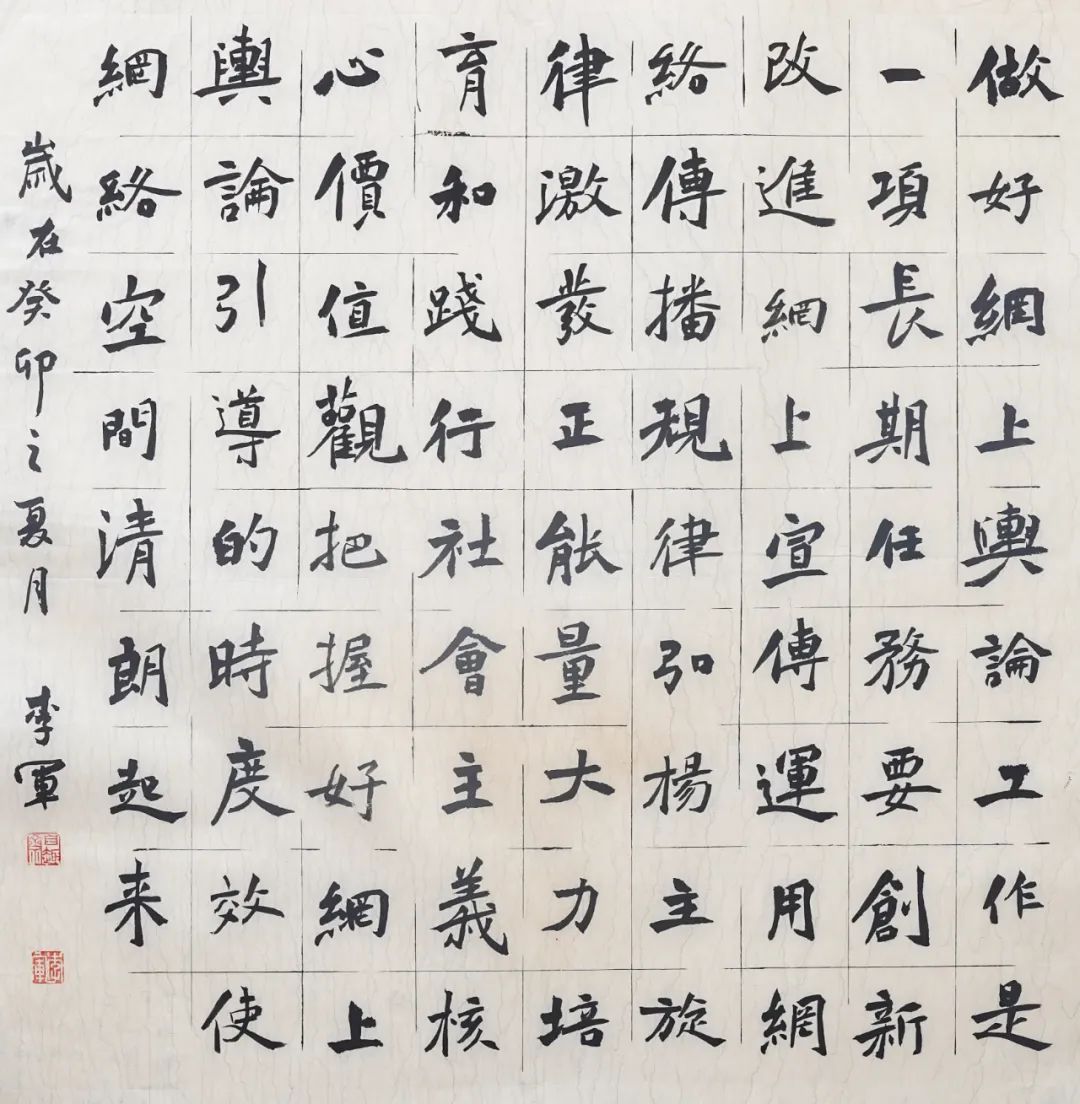 做好網上輿論工作是
一項長期任務要創新
改進網上宣傳運用網
絡傳播規律弘楊主旋
律激發正能量大力培
育和踐行社會主義核
心價值觀把握好網上
輿論引導的時度效使
網絡空間清朗起来
歲在癸卯之夏月 李軍